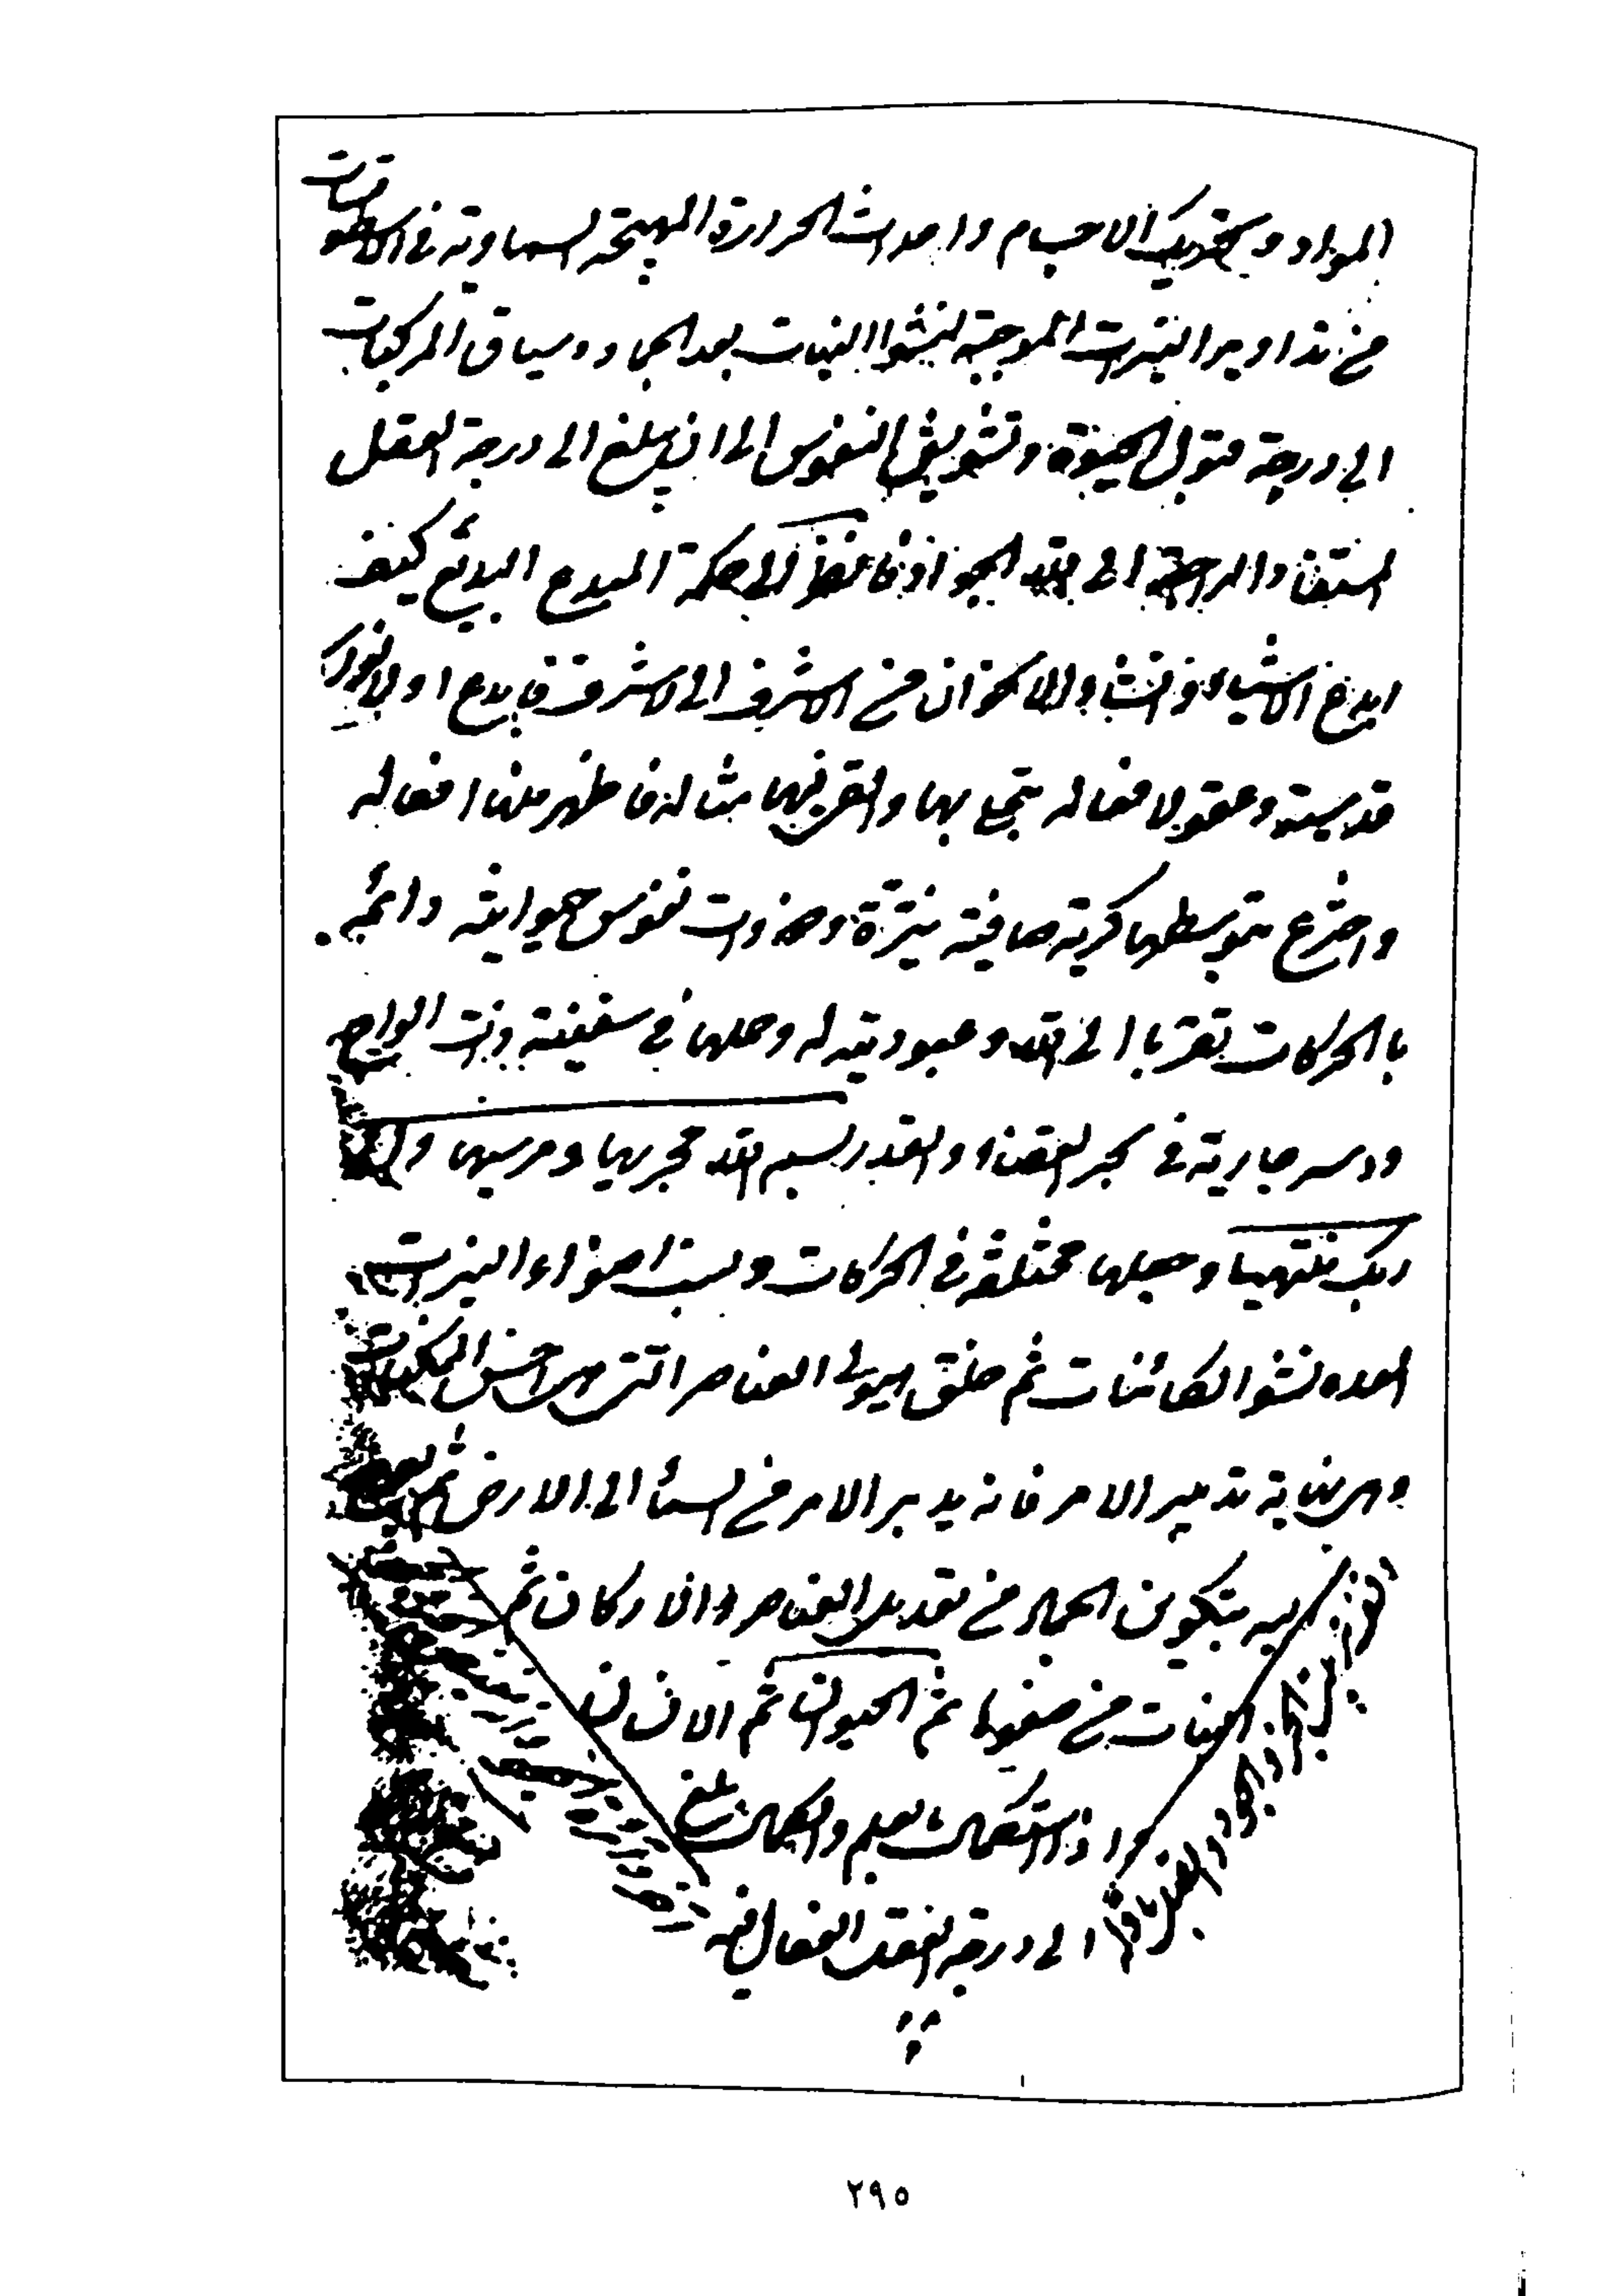 المواد و تحريك الاجسام واحداث الحرارة المهيجة السماوية في الاسطقسات
من تداوير النيرات الموجبة لنشوا النبات بعد الجماد وسياق المركبات
الى درجة قبول الحيوة وتشويق النفوس الى ان يبلغ الى درجة العقل
المستفاد الراجعة الى الله الجواد فانظر الى حكمة المبدع البديع كيف
ابدع الاشياء وانشاء الاكوان من الاشرف الى الاشرف فابدع اولا انوارا
قدسية وعقولا فعالة تجلى بها والقى فيها مثاله فاظهر منها افعاله
واخترع بتوسطها كرية صافية نيرة ذوات نفوس حيوانية دائمة
بالحركات تقربا الى الله وعبودية له وحملها في سفينة ذات الواح
ودسر جارية في بحر القضاء والقدر بسم الله مجريها ومرسيها والى
ربك منتهيها وجعلها مختلفة في الحركات ونسب اضواء النيرات
المعدة لنشو الكائنات ثم خلق هيولى العناصر التي هي اخس الممكنات
وهي نهاية تدبير الامر فانه يدبر الامر من السماء الى الارض ثم يعرج
اليه بتكوين الجماد من تعديل العناصر والاركان ثم
النبات من صفوها ثم الحيوان ثم الانسان
واذا استكمل بالعلم والكمال بلغ
الى درجة العقل الفعال فيه
٢٩٥